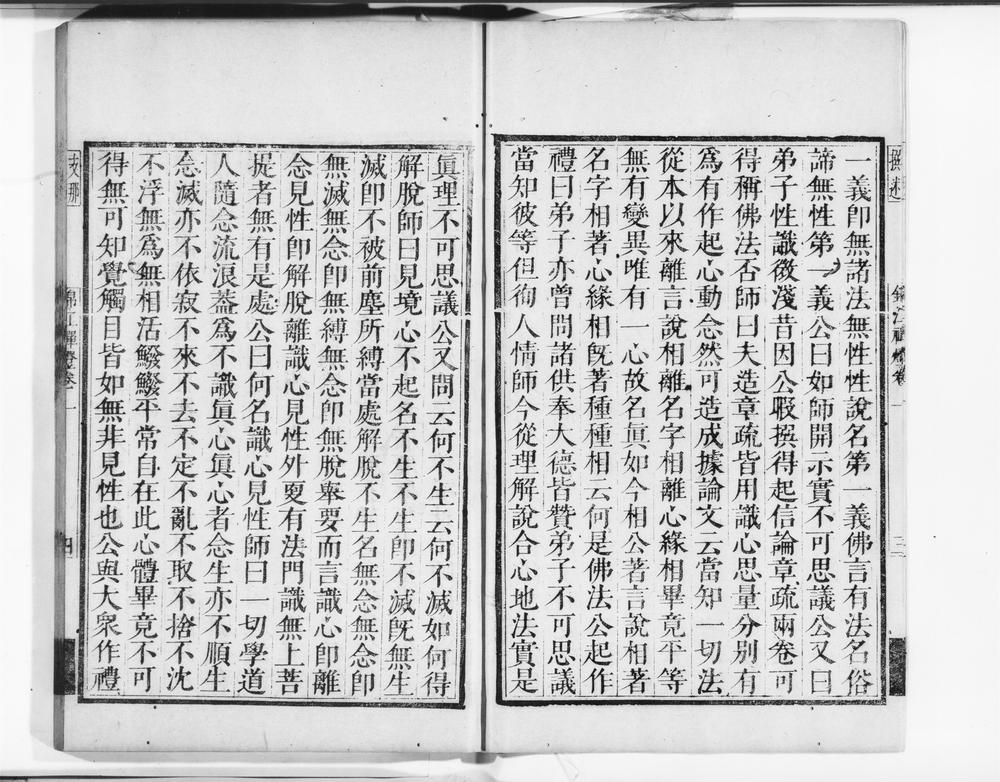 一義卽無諸法無性性說名第一義佛言有法名俗
諦無性第一義公曰如師開示實不可思議公又曰
弟子性識微淺昔因公暇撰得起信論章疏兩卷可
得稱佛法否師曰夫造章疏皆用識心思量分別有
爲有作起心動念然可造成據論文云當知一切法
從本以來離言說相離名字相離心緣相畢竟平等
無有變異唯有一心故名眞如今相公著言說相著
名字相著心緣相旣著種種相云何是佛法公起作
禮曰弟子亦曾問諸供奉大德皆贊弟子不可思議
當知彼等但徇人情師今從理解說合心地法實是
眞理不可思議公又問云何不生云何不滅如何得
解脫師曰見境心不起名不生不生卽不滅旣無生
滅卽不被前塵所縛當處解脫不生名無念無念卽
無滅無念卽無縛無念卽無脫舉要而言識心卽離
念見性卽解脫離識心見性外更有法門識無上菩
提者無有是處公曰何名識心見性師曰一切學道
人隨念流浪葢爲不識眞心眞心者念生亦不順生
念滅亦不依寂不來不去不定不亂不取不捨不沈
不浮無爲無相活鱍鱍平常自在此心體畢竟不可
得無可知覺觸目皆如無非見性也公與大衆作禮
錦江禪燈卷一